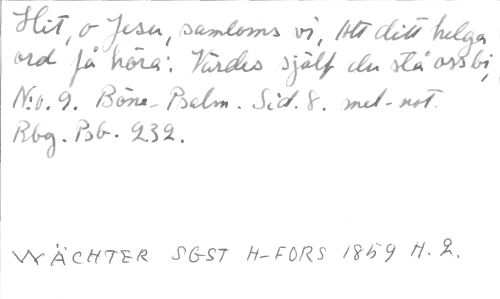 Hit, o Jesu, samloms vi, Att ditt helga
ord få höra: Värdes själf du stå oss bi,
N:o. 9. Böne-Psalm. Sid. 8. mel-not.
Rbg. Psb. 232.
WÄCHTER SGST H-FORS 1859 H. 2.